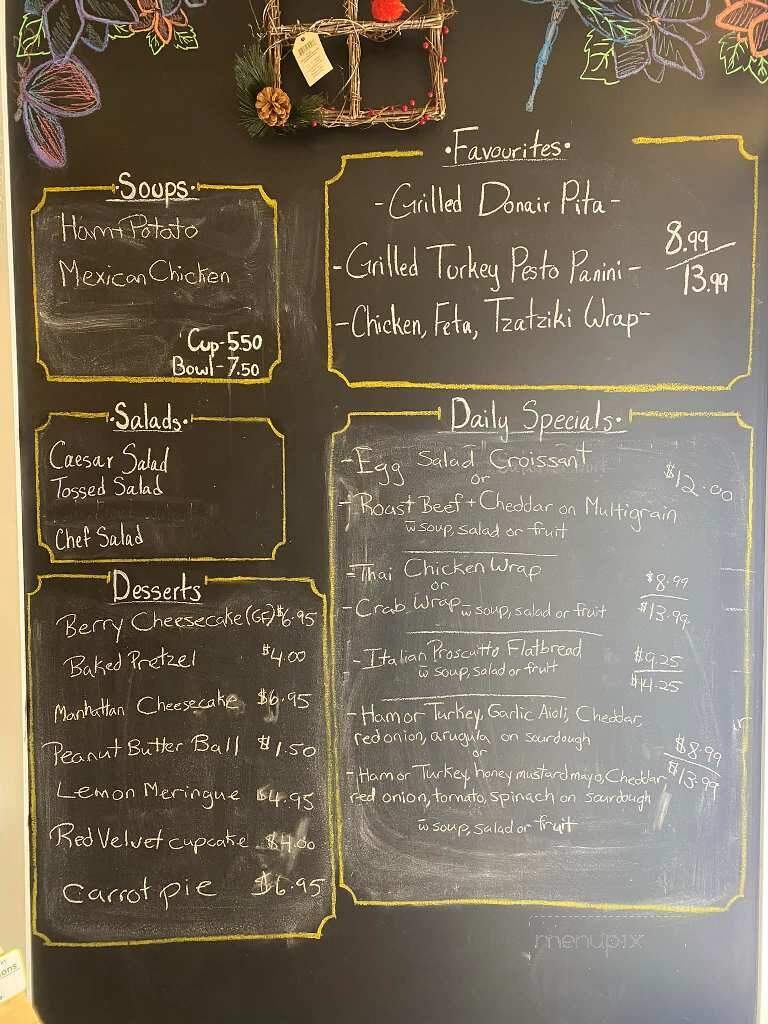 ·Soups·
Ham+Potato
Mexican Chicken
Cup-5.50
Bowl-7.50
·Salads·
Caesar Salad
Tossed Salad
Chef Salad
Desserts
Berry Cheesecake (GF) $6.95
Baked Pretzel $4.00
Manhattan Cheesecake $6.95
Peanut Butter Ball $1.50
Lemon Meringue $4.95
Red Velvet cupcake $4.00
carrot pie $6.95
·Favourites·
-Grilled Donair Pita-
-Grilled Turkey Pesto Panini-
8.99
13.99
-Chicken, Feta, Tzatziki Wrap-
Daily Specials·
-Egg Salad Croissant
or
$12.00
-Roast Beef+Cheddar on Multigrain
w soup, salad or fruit
-Thai Chicken Wrap
or
$8.99
-Crab Wrap w soup, salad or fruit
$13.99
-Italian Proscuitto Flatbread
w soup, salad or fruit
$9.25
$14.25
-Ham or Turkey, Garlic Aioli, Cheddar,
red onion, arugula on sourdough
or
$8.99
$13.99
-Ham or Turkey, honey mustard mayo, Cheddar
red onion, tomato, spinach on sourdough
w soup, salad or fruit
menupix